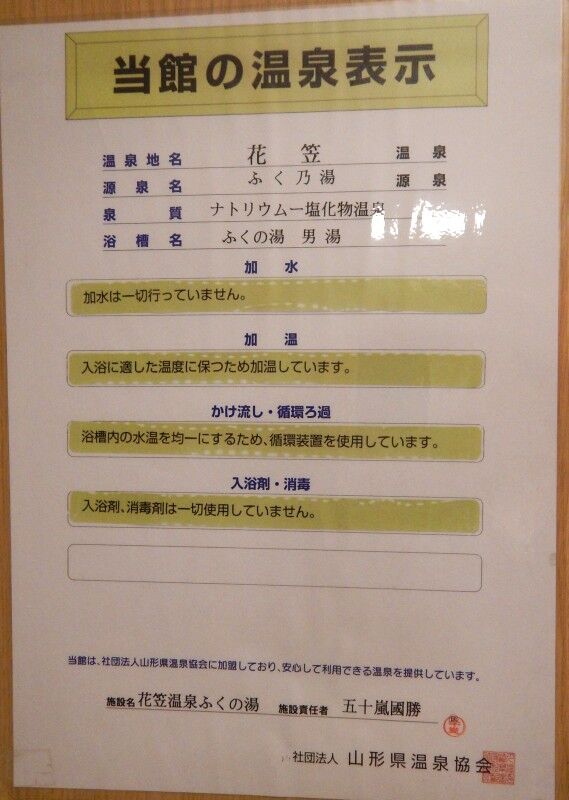 当館の温泉表示
温泉地名 花笠 温泉
源泉名 ふく乃湯 源泉
泉質 ナトリウムー塩化物温泉
浴槽名 ふくの湯 男湯
加水
加水は一切行っていません。
加温
入浴に適した温度に保つため加温しています。
かけ流し・循環ろ過
浴槽内の水温を均一にするため、循環装置を使用しています。
入浴剤・消毒
入浴剤、消毒剤は一切使用していません。
当館は、社団法人山形県温泉協会に加盟しており、安心して利用できる温泉を提供しています。
施設名 花笠温泉ふくの湯 施設責任者 五十嵐國勝
社団法人 山形県温泉協会